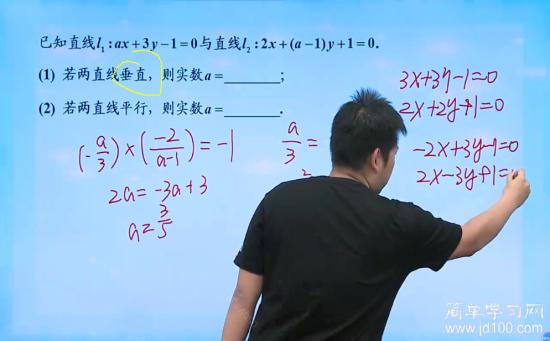 已知直线l₁:ax+3y-1=0与直线l₂:2x+(a-1)y+1=0.
(1) 若两直线垂直，则实数a=________;
(2) 若两直线平行，则实数a=________.
(-a/3)×(-2/a-1)=-1
2a=-3a+3
a=3/5
a/3=
3x+3y-1=0
2x+2y+1=0
-2x+3y-1=0
2x-3y+1=
简单学习网
www.jd100.com